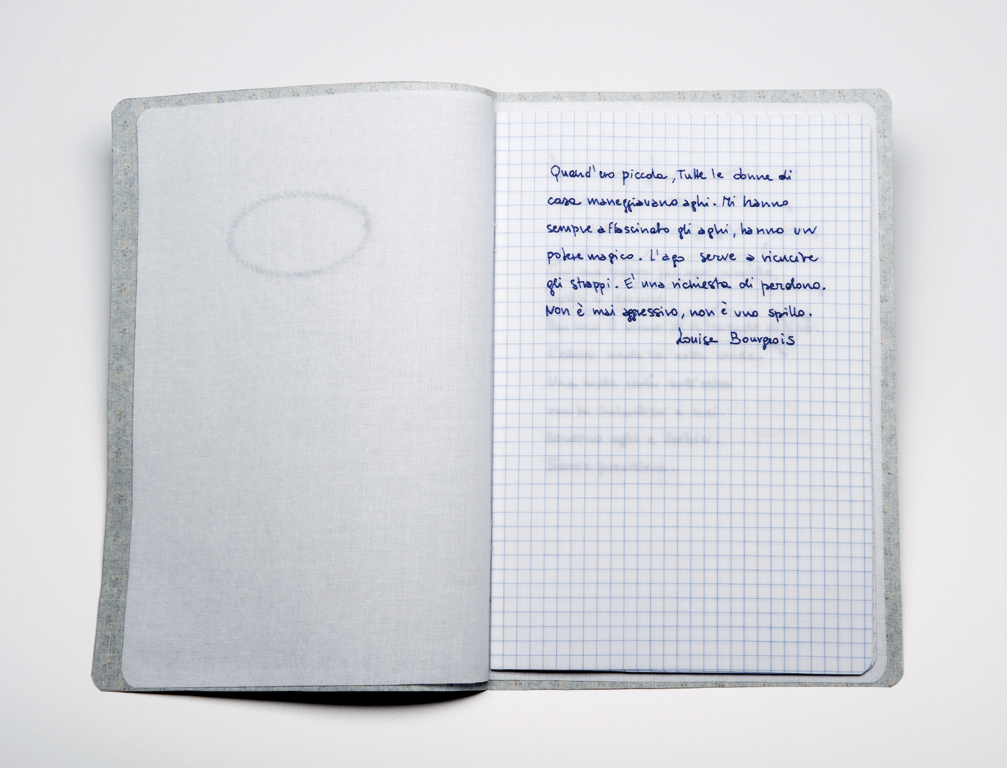 Quand'ero piccola, Tutte le donne di
casa maneggiavano aghi. Mi hanno
sempre affascinato gli aghi, hanno un
potere magico. L'ago serve a ricucire
gli strappi. E' una richiesta di perdono.
Non è mai aggressivo, non è uno spillo.
Louise Bourgeois